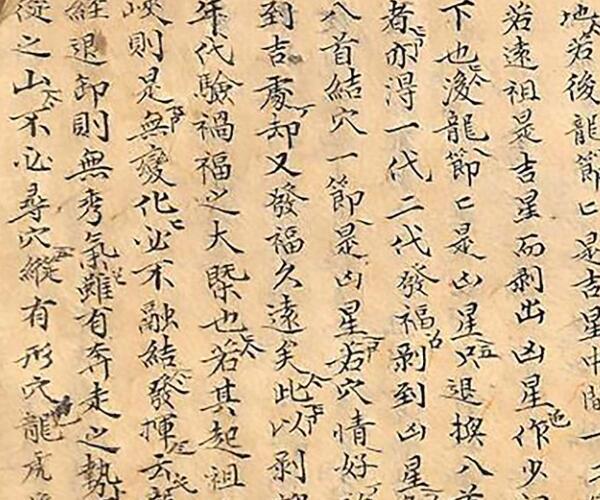 地若後龍節〻是吉星中間一
若遠祖是吉星而剥出凶星作少
下也後龍節〻是凶星只退換八首
者亦得一代二代發福剥到凶星
八首結穴一節是凶星若穴情好
到吉處却又發福久遠矣此以剥
年代驗禍福之大槩也若其起祖
峽則是無變化必不融結發揮云
經退卸則無秀氣雖有奔走之勢
從之山不必尋穴縱有形穴龍虎